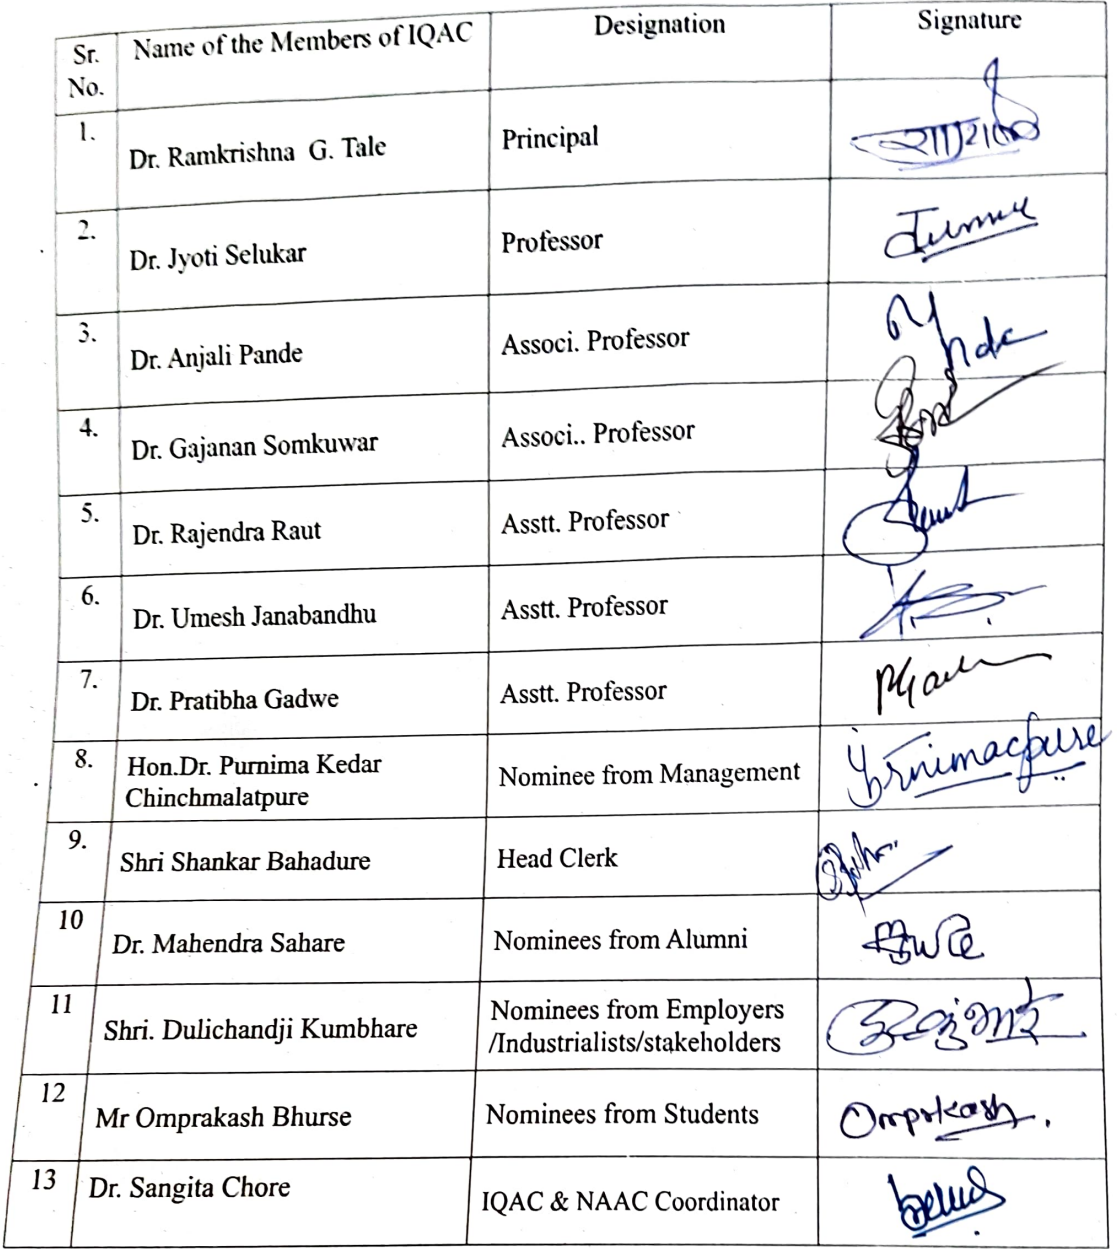 Sr. No. Name of the Members of IQAC Designation Signature
1. Dr. Ramkrishna G. Tale Principal
2. Dr. Jyoti Selukar Professor
3. Dr. Anjali Pande Associ. Professor
4. Dr. Gajanan Somkuwar Associ.. Professor
5. Dr. Rajendra Raut Asstt. Professor
6. Dr. Umesh Janabandhu Asstt. Professor
7. Dr. Pratibha Gadwe Asstt. Professor
8. Hon.Dr. Purnima Kedar
Chinchmalatpure Nominee from Management
9. Shri Shankar Bahadure Head Clerk
10 Dr. Mahendra Sahare Nominees from Alumni
11 Shri. Dulichandji Kumbhare Nominees from Employers
/Industrialists/stakeholders
12 Mr Omprakash Bhurse Nominees from Students Omprkash.
13 Dr. Sangita Chore IQAC & NAAC Coordinator